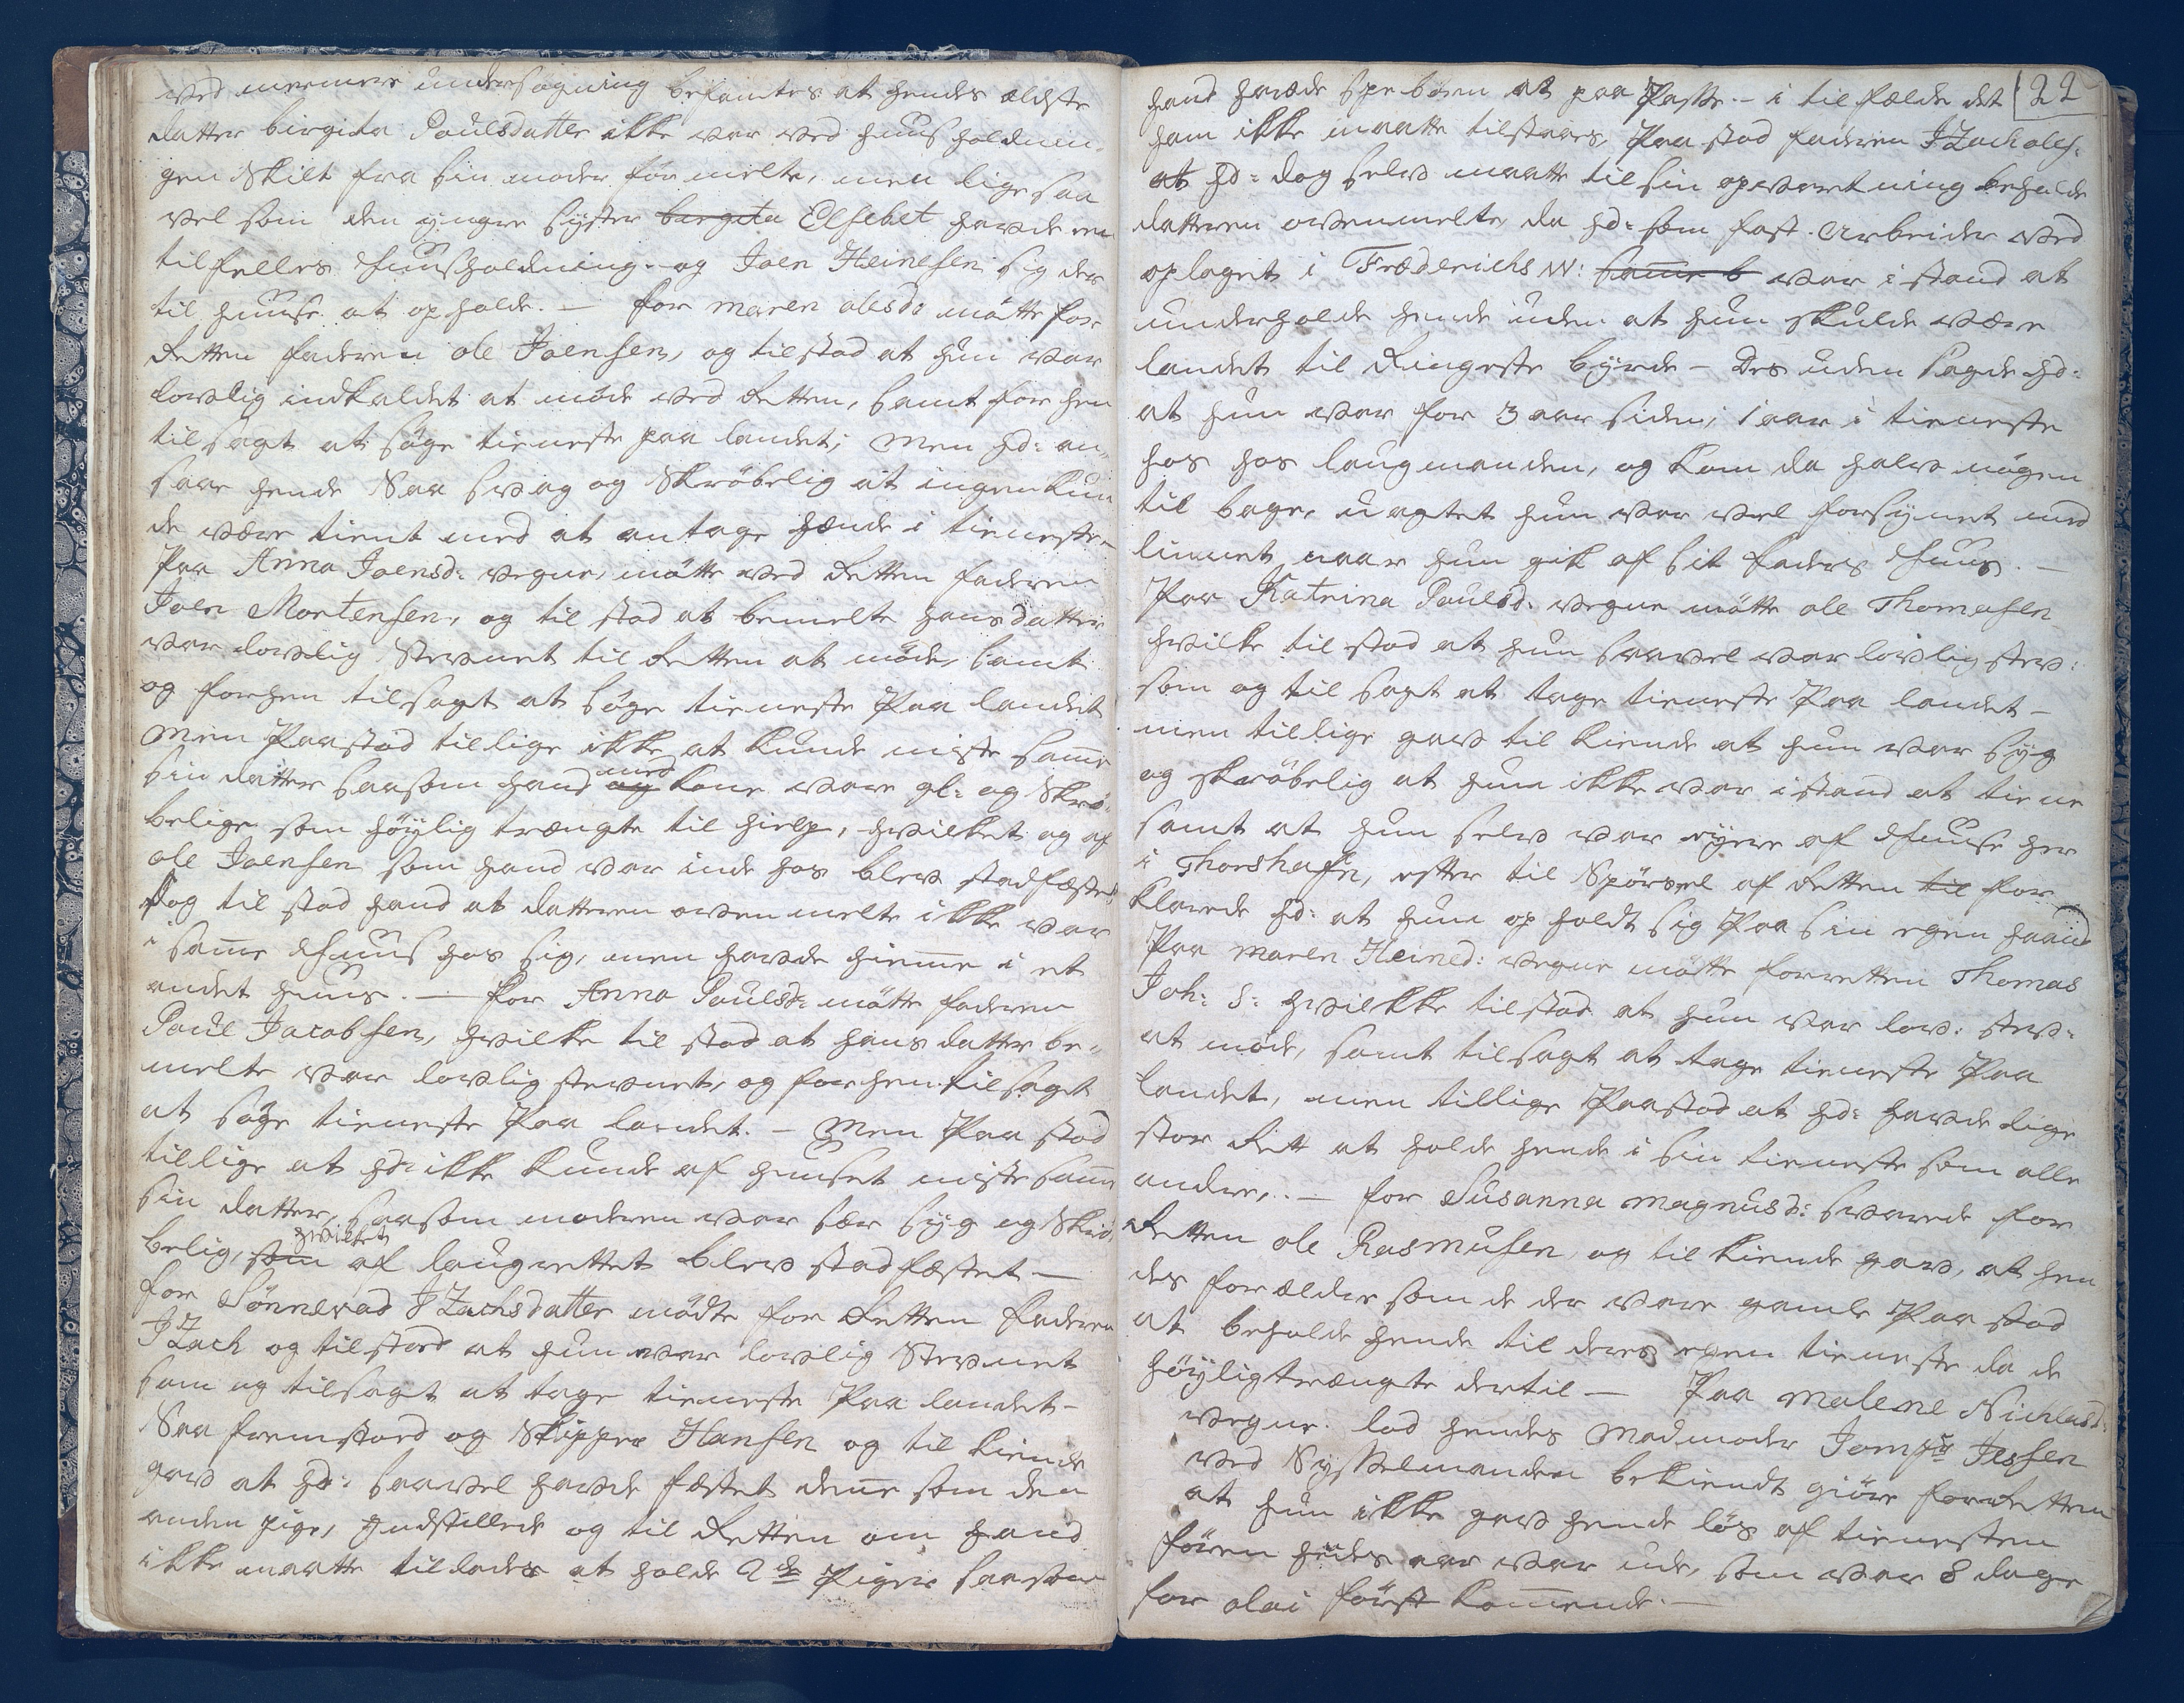 ved nermere undersøgning befantes at hendes ældste
datter birgita Paulsdatter ikke var ved huus holdnin,
gen Skilt fra sin moder for melte, men lige saa
vel som den yngre syster birgita Elsebet havde en
tilfelles Huusholdning og Joen Heinesen sig der
til huuse at opholde. — for maren olesd: mötte for
Retten faderen ole Joensen, og tilstod at hun var
lovlig indkaldet at møde ved Retten, samt for hen
tilsagt at søge tieneste paa landet; Men hd: an,
saae hende Saa svag og Skröbelig at ingen kun
de være tient med at antage hænde i tieneste,
Paa Anna Joensd: vegne, mötte ved Retten faderen
Joen Mortensen, og til stod at bemelte hans datter
var lovlig Stevnet til Retten at møde, samt
og forhen tilsagt at søge tieneste Paa landet
Men Paastod tillige ikke at kunde miste samme
sin datter saasom hand og med kone vare gl: og Skrø,
belige som höylig trængte til hielp, hvilket og af
ole Joensen som hand var inde hos blev stadfæstet
Dog til stod hand at datteren ovenmelte ikke var
i samme Huus hos sig, men havde hiemme i et
andet huus. — for Anna Paulsd: mötte faderen
Paul Jacobsen, hvilke til stod at hans datter be,,
melte var lovlig stevnet, og forhen tilsagt
at søge tieneste Paa landet. — Men Paa stod
tillige at hd: ikke kunde af huuset miste samme
sin datter, saasom moderen var sær syg og Skrö
belig, som hvilket af laugrettet blev stadfæstet —
for Sönnevad JZachsdatter mødte for Retten faderen
JZach og tilstoed at hun var lovlig Stevnet
som og tilsagt at tage tieneste Paa landet —
Saa fremstoed og Skipper Hansen og til kiende
gav at hd: saavel havde fæstet denne som den
anden pige, Indstillede og til Retten om hand
ikke maatte tillades at holde 2de Piger saasom
22
hand havde spe børn at paa Passe. — i til fælde det
ham ikke maatte tilstaaes, Paa stod faderen JZach oles:
at hd: dog selv maatte til sin opvartning beholde
datteren ovenmelte, da hd: som fast Arbeider ved
oplaget i Fræderichs W: samme b var i stand at
underholde hende uden at hun skulde være
landet til Ringeste byrde — Des uden sagde hd:
at hun var for 3 aar siden, 1 aar i tieneste
hos hos laugmanden, og kom da halv nøgen
til bage, uagtet hun var vel forsynet med
linnet naar hun gik af sit faders Huus. —
Paa Katrina Paulsd: vegne mötte ole Thomasen
hvilke til stod at hun saavel var lovlig stev:
som og til sagt at tage tieneste Paa landet —
men tillige gav til kiende at hun var syg
og skröbelig at hun ikke var i stand at tiene
samt at hun selv var eyere af Huuse her
i Thorshafn, efter til Spörsel af Retten til for
klarede hd: at hun op holdt sig Paa sin egen haand
Paa maren Heined: vegne mötte for retten Thomas
Joh: S: hvilkke tilstod at hun var lov: stev:
at møde, samt tilsagt at tage tieneste Paa
landet, men tillige Paastod at hd: havde lige
stor Rett at holde hende i sin tieneste som alle
andre, . — for Susanna magnusd: svarede for
Retten ole Rasmusen og til kiende gav, at hen
des forældre som de der vare gamle Paa stod
at beholde hende til deres egen tieneste da de
höylig trængte dertil — Paa malene Nichlasd:
vegne lod hendes Madmoder Jomfr Jessen
ved Sysselmanden bekiendt giöre for Retten
at hun ikke gav hende løs af tienesten
förren hendes aar var ude, som var 8 dage
for olai först kommende. —